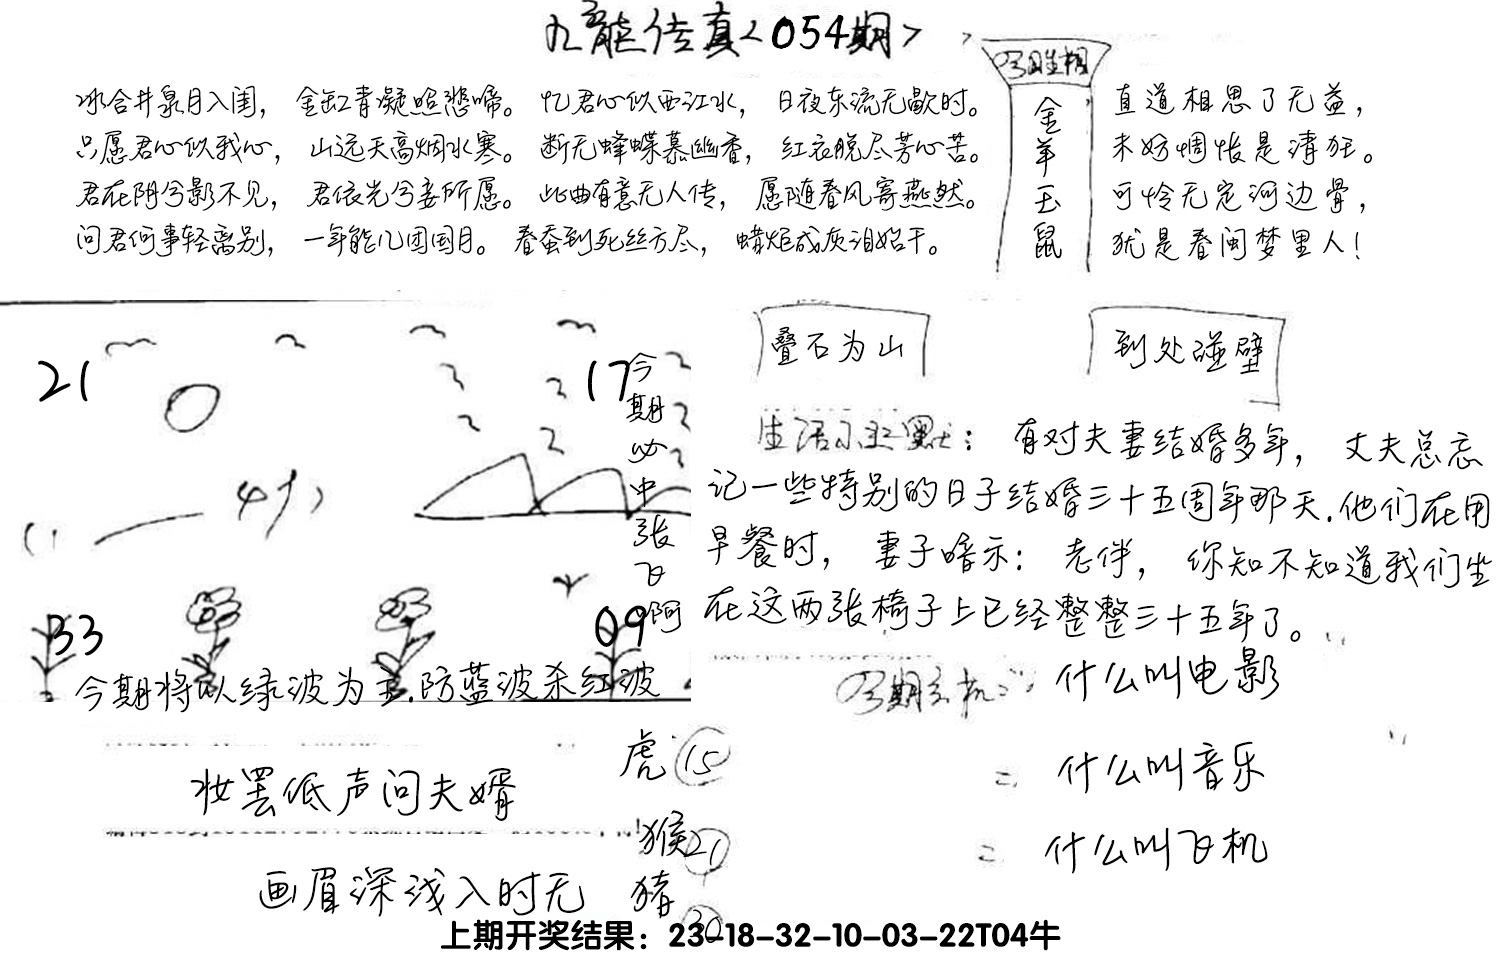 九龙传真<054期>
冰合井泉月入闺，金缸青凝照悲啼。忆君心似西江水，日夜东流无歇时。
只愿君心似我心，山远天高烟水寒。断无蜂蝶慕幽香，红衣脱尽芳心苦。
君在阴兮影不见，君依光兮妾所愿。此曲有意无人传，愿随春风寄燕然。
问君何事轻离别，一年能几团圆月。春蚕到死丝方尽，蜡炬成灰泪始干。
今期生相
金羊玉鼠
直道相思了无益，
未妨惆怅是清狂。
可怜无定河边骨，
犹是春闺梦里人！
21
17
33
09
今期必中张飞啊
今期将以绿波为主.防蓝波杀红波
叠石为山
到处碰壁
生活幽默：有对夫妻结婚多年，丈夫总忘
记一些特别的日子结婚三十五周年那天.他们在用
早餐时，妻子暗示：老伴，你知不知道我们坐
在这两张椅子上已经整整三十五年了。
今期玄机：什么叫电影
什么叫音乐
什么叫飞机
妆罢低声问夫婿
画眉深浅入时无
虎 15
猴 21
猪 30
上期开奖结果：23-18-32-10-03-22T04牛